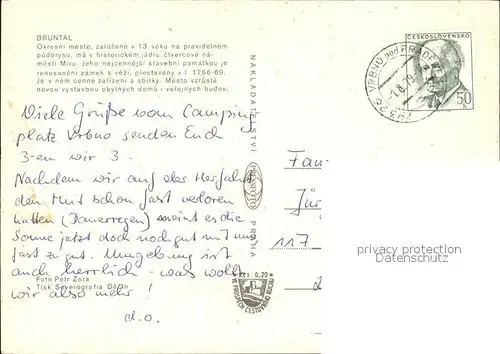 BRUNTÁL
Okresní město, založené v 13. věku na pravidelném
půdorysu, má v historickém jádru čtvercové ná-
městí Míru. Jeho nejcennější stavební památkou je
renesanční zámek s věží, přestavěný v l. 1766-69.
Je v něm cenné zařízení a sbírky. Město vzrůstá
novou výstavbou obytných domů i veřejných budov.
ČESKOSLOVENSKO
50
VRBNO pod PRADĚ
793 26
Viele Grüße vom Camping
platz Vrbno senden Euch
3-en wir 3.
Nachdem wir auf der Herfahrt
den Mut schon fast verloren
hatten (Dauerregen) meint es die
Sonne jetzt doch noch gut mit uns
fast zu gut. Umgebung ist
auch herrlich - was wollt
wir also mehr!
d.o.
NAKLADATELSTVÍ
PRAHA
Fam
Jür
117
privacy protection
Datenschutz
Kčs 0,20
VE PROSPĚCH CESTOVNÍHO RUCHU
Foto Petr Zora
Tisk Severografia Děčín